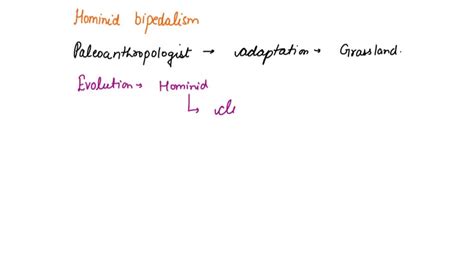 Hominid bipedalism
Paleoanthropologist → adaptation → Grassland.
Evolution → Hominid
↳ cl